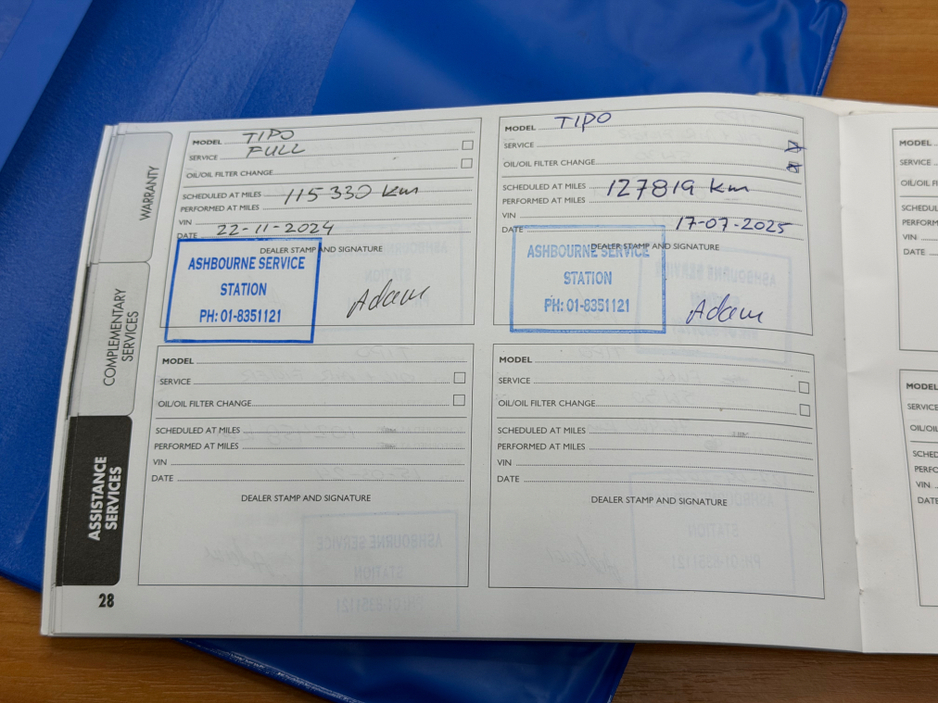 WARRANTY
COMPLEMENTARY
SERVICES
ASSISTANCE
SERVICES
28
MODEL TIPO
SERVICE FULL
OIL/OIL FILTER CHANGE
SCHEDULED AT MILES 115330 km
PERFORMED AT MILES
VIN
DATE 22-11-2024
DEALER STAMP AND SIGNATURE
ASHBOURNE SERVICE
STATION
PH: 01-8351121
Adam
MODEL TIPO
SERVICE
OIL/OIL FILTER CHANGE
SCHEDULED AT MILES 127819 km
PERFORMED AT MILES
VIN
DATE 17-07-2025
DEALER STAMP AND SIGNATURE
ASHBOURNE SERVICE
STATION
PH: 01-8351121
Adam
MODEL
SERVICE
OIL/OIL FILTER CHANGE
SCHEDULED AT MILES
PERFORMED AT MILES
VIN
DATE
DEALER STAMP AND SIGNATURE
MODEL
SERVICE
OIL/OIL FILTER CHANGE
SCHEDULED AT MILES
PERFORMED AT MILES
VIN
DATE
DEALER STAMP AND SIGNATURE
MODEL
SERVICE
VIN
DATE
MODEL
SERVICE
VIN
DATE